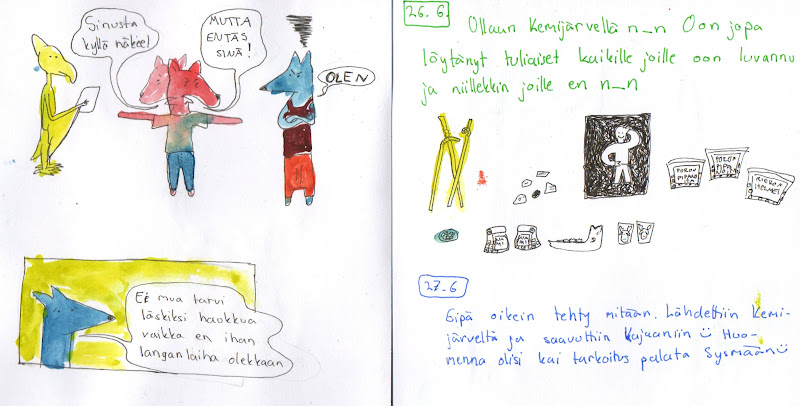 Sinusta
kyllä näkee!
MUTTA
ENTÄS
SINÄ!
OLEN
Ei mua tarvi
läskiksi haukkua
vaikka en ihan
langanlaiha olekkaan
26.6.
Ollaan Kemijärvellä n_n Oon jopa
löytänyt tuliaiset kaikille joille oon luvannu
ja niillekkin joille en n_n
PORON
PIPANO
PORON
PIPA
RIEKON
HELMET
27.6
Eipä oikein tehty mitään. Lähdettiin Kemi-
järveltä ja saavuttiin Kajaaniin Huo-
menna olisi kai tarkoitus palata Sysmään